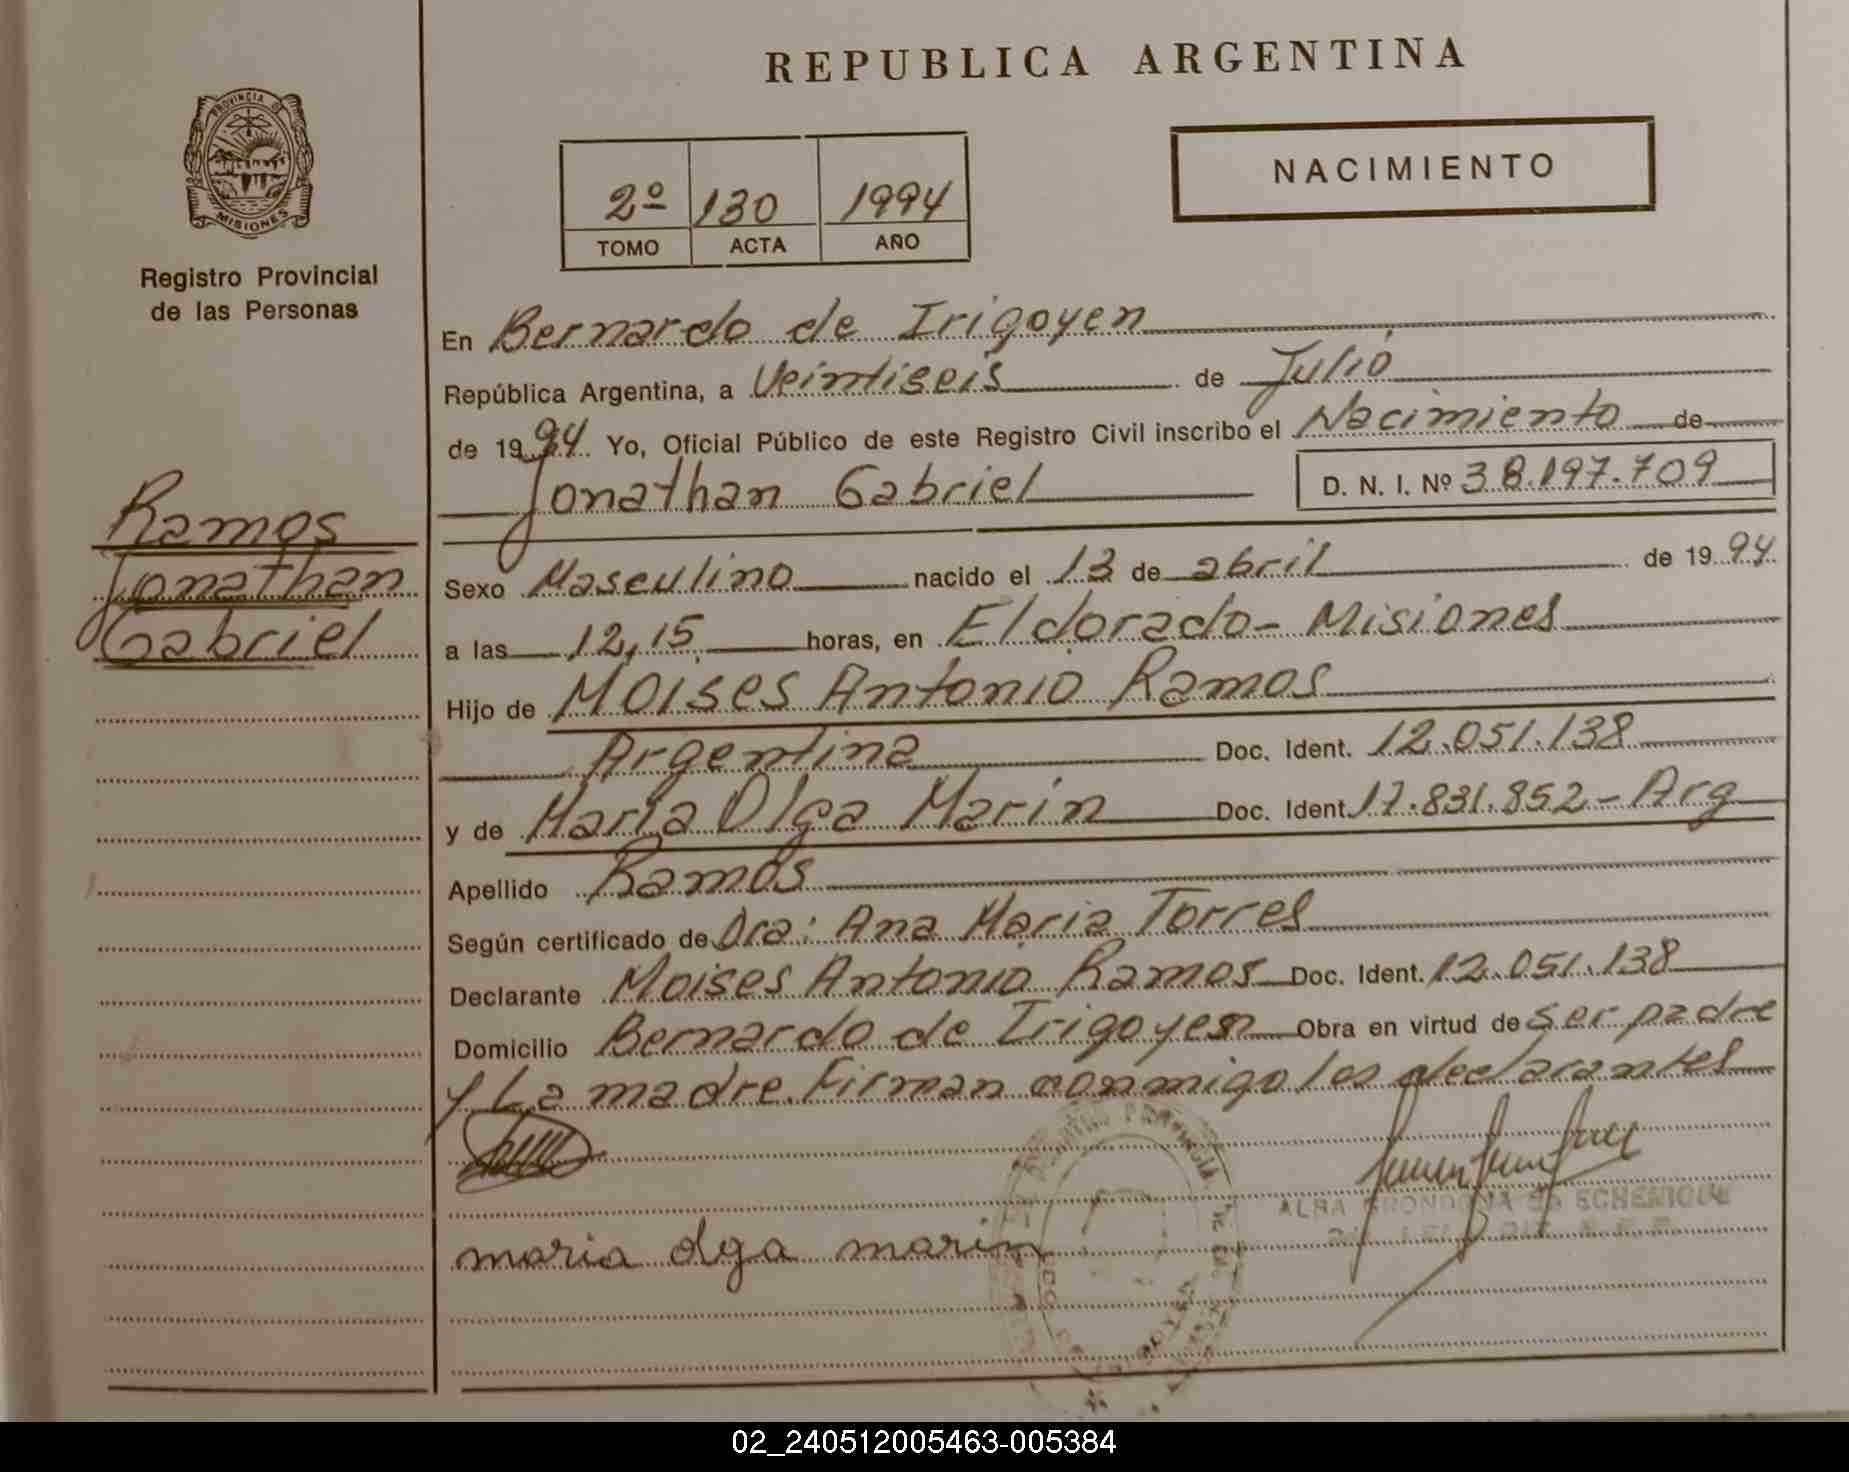 REPUBLICA ARGENTINA
PROVINCIA D
MISIONES
Registro Provincial
de las Personas
NACIMIENTO
2º 130 1994
TOMO ACTA AÑO
En Bernardo de Irigoyen
República Argentina, a Veintiseis de Julio
de 1994. Yo, Oficial Público de este Registro Civil inscribo el Nacimiento de
Jonathan Gabriel D. N. I. Nº 38.197.709
Ramos
Jonathan
Gabriel
Sexo Masculino nacido el 13 de abril de 1994.
a las 12,15 horas, en Eldorado - Misiones
Hijo de Moises Antonio Ramos
Argentina Doc. Ident. 12.051.138
y de Maria Olga Marin Doc. Ident. 17.831.852 - Arg
Apellido Ramos
Según certificado de Dra: Ana Maria Torres
Declarante Moises Antonio Ramos Doc. Ident. 12.051.138
Domicilio Bernardo de Irigoyen Obra en virtud de ser padre
y La madre. Firman conmigo los declarantes
ALBA GRONDONA DE ECHENIQUE
maria olga marin
02_240512005463-005384